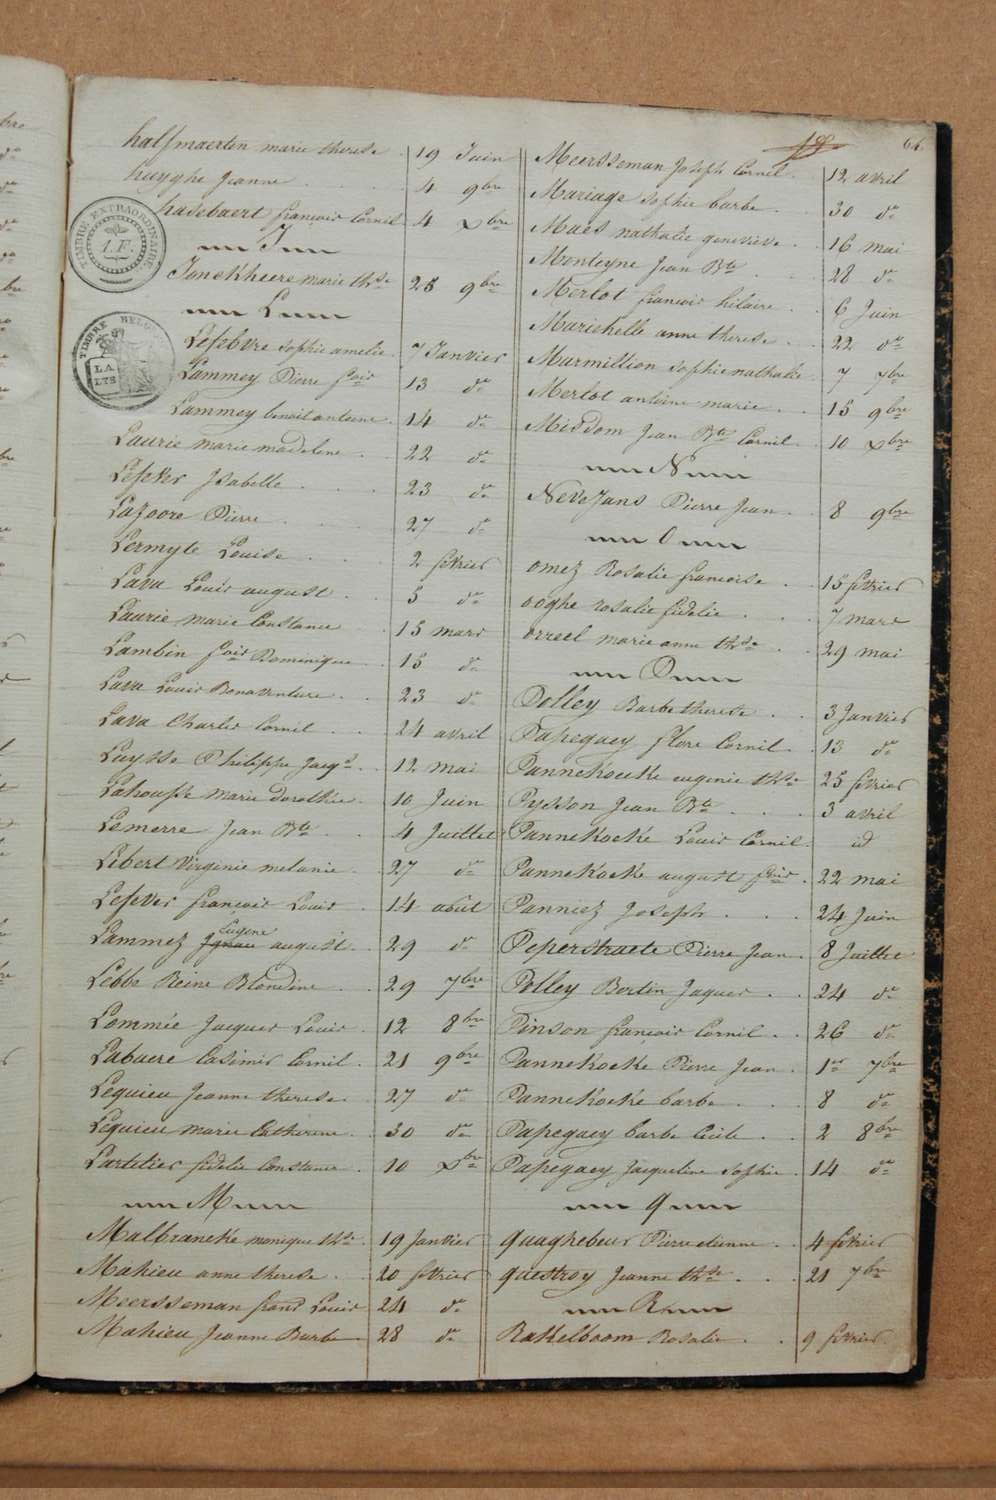 64
halfmaerten marie therese 19 Juin
huyghe Jeanne 4 9bre
hasebaert francois Cornil 4 Xbre
TIMBRE EXTRAORDINAIRE
1. F.
J
Jonckheere marie thse 25 9bre
L
TIMBRE BELGE
Lefebvre sophie amelie 7 Janvier
Lammey Pierre fcois 13 do
Lammey benoit antoine 14 do
Laurie marie madelene 22 do
Lefever Isabelle 23 do
Lazoore Pierre 27 do
Lermyte Louise 2 fevrier
Lava Louis august 5 do
Laurie marie Constance 15 mars
Lambin fcois Dominique 15 do
Lava Louis Bonaventure 23 do
Lava Charles Cornil 24 avril
Luysse Philippe Jacqs 12 mai
Lahousse Marie Dorothée 10 Juin
Lemerre Jean Bte 4 Juillet
Lebert Virginie melanie 27 do
Lefever francois Louis 14 août
Eugene
Lammez august 29 do
Lebbe Reine Blondine 29 7bre
Lommée Jacques Louis 12 8bre
Labaere Casimir Cornil 21 9bre
Lequieu Jeanne therese 27 do
Lequieu marie Catherine 30 do
Lartilier fidelie Constance 10 Xbre
M
Malbrancke monique thse 19 Janvier
Mahieu anne therese 20 fevrier
Meersseman frans Louis 24 do
Mahieu Jeanne Barbe 28 do
Meersseman Joseph Cornil 12 avril
Mariage Sophie barbe 30 do
Maes nathalie genevieve 16 mai
Monteyne Jean Bte 28 do
Merlot francois hilaire 6 Juin
Marichelle anne therese 22 do
Marmillion sophie nathalie 7 7bre
Merlot antoine marie 15 9bre
Misdom Jean Bte Cornil 10 Xbre
N
Nevejans Pierre Jean 8 9bre
O
omez Rosalie francoise 15 fevrier
ooghe rosalie fidelie 7 mars
orreel marie anne thse 29 mai
P
Polley Barbe therese 3 Janvier
Papegaey flore Cornil 13 do
Pannekoucke eugenie thse 25 fevrier
Pysson Jean Bte 3 avril
Pannekocke Louis Cornil id
Pannekocke august fcois 22 mai
Panniez Joseph 24 Juin
Peperstraete Pierre Jean 8 Juillet
Polley Bertin Jaques 24 do
Pinson francois Cornil 26 do
Pannekocke Pierre Jean 1er 7bre
Pannekocke barbe 8 do
Papegaey barbe Cecile 2 8bre
Papegaey Jacqueline sophie 14 do
q
quaghebeur Pierre etienne 4 fevrier
questroy Jeanne thse 21 7bre
R
Rakelboom Rosalie 9 fevrier